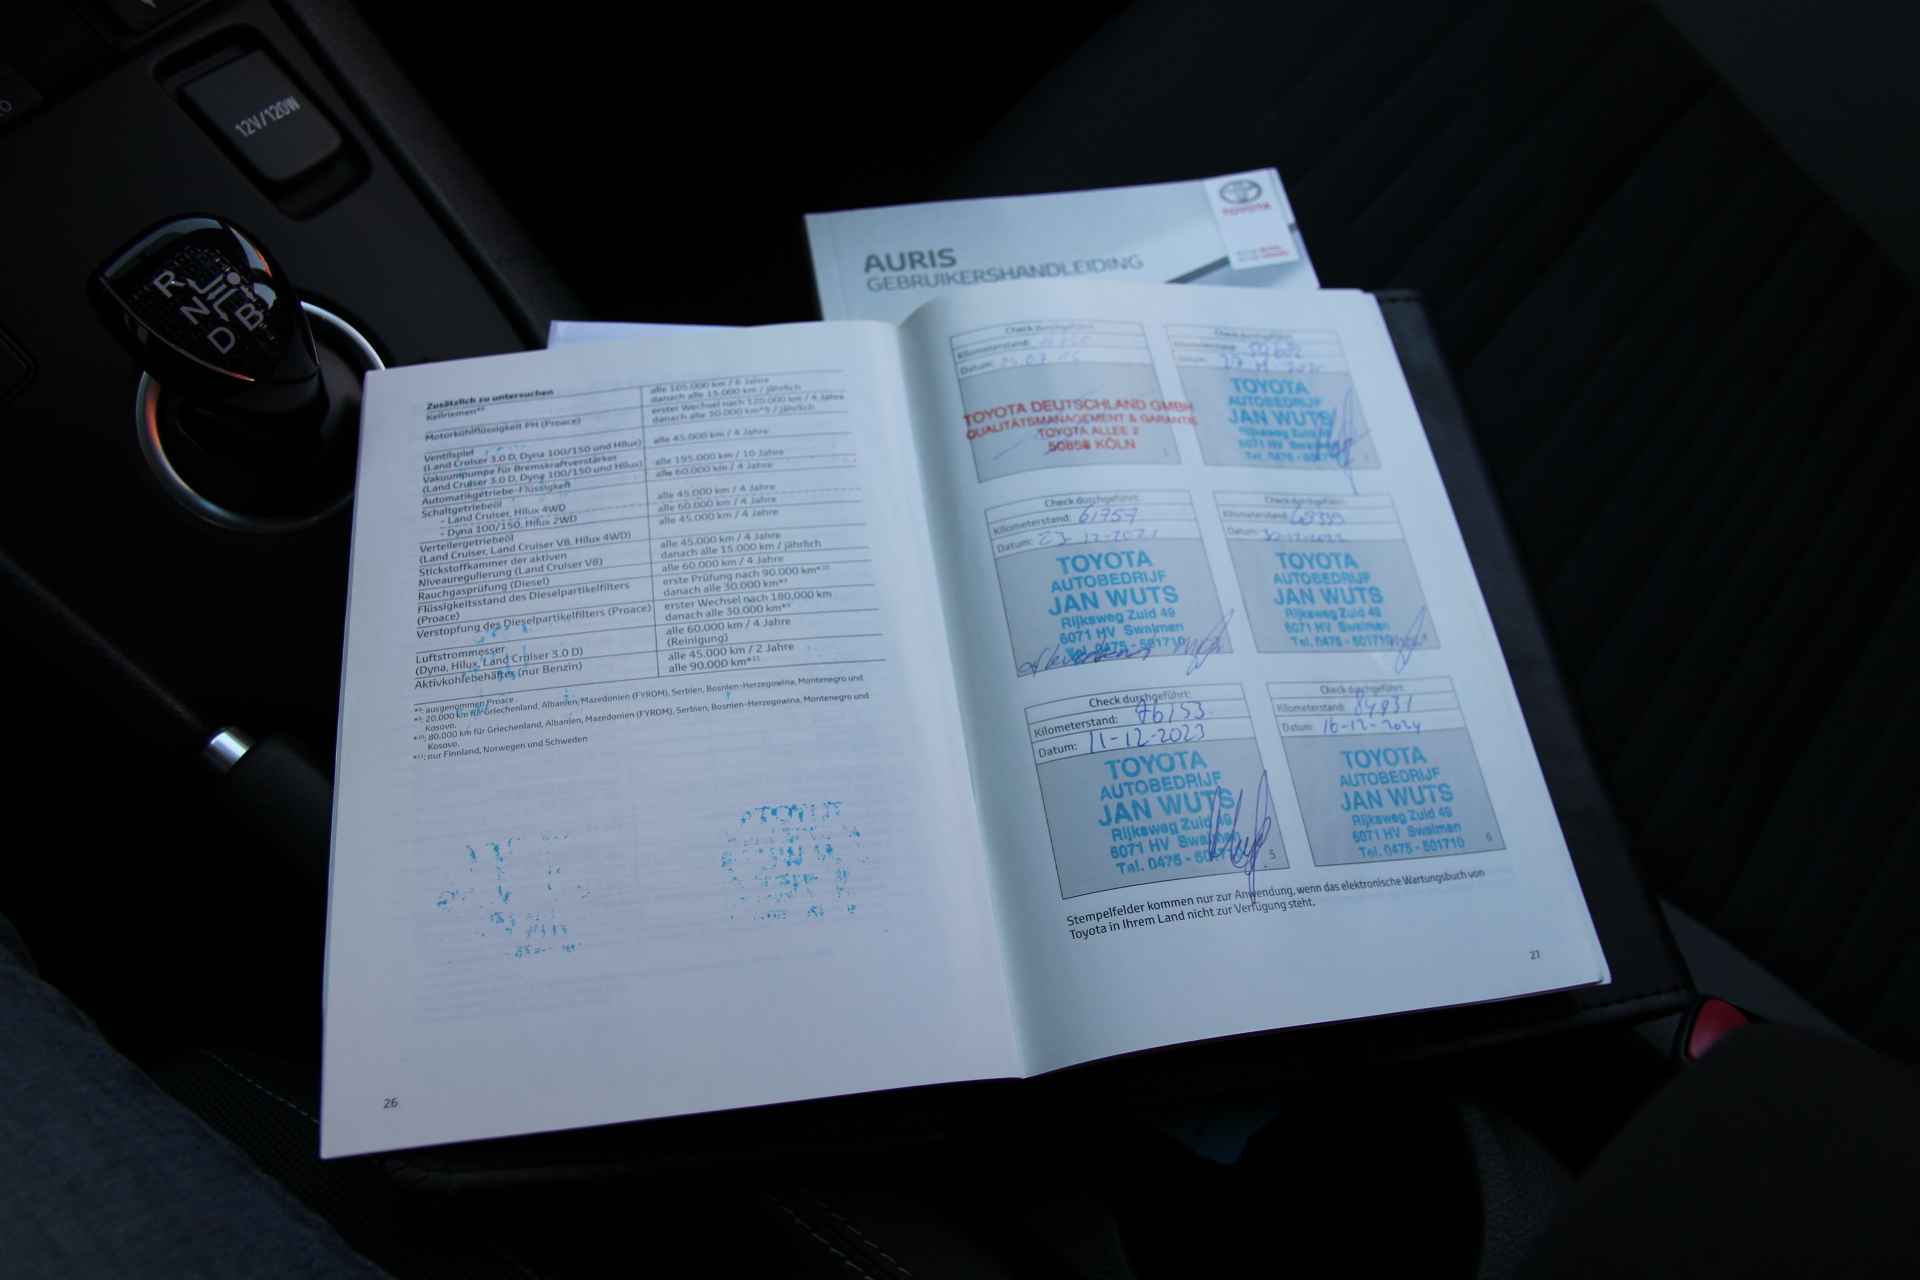 12V/120W
R
N
D
B
TOYOTA
AURIS
GEBRUIKERSHANDLEIDING
Zusätzlich zu untersuchen
Keilriemen
alle 105.000 km / 6 Jahre
danach alle 15.000 km / jährlich
Motorkühlflüssigkeit PH (Proace)
erster Wechsel nach 120.000 km / 4 Jahre
danach alle 30.000 km*⁹ / jährlich
Ventilspiel
(Land Cruiser 3.0 D, Dyna 100/150 und Hilux)
alle 45.000 km / 4 Jahre
Vakuumpumpe für Bremskraftverstärker
(Land Cruiser 3.0 D, Dyna 100/150 und Hilux)
alle 195.000 km / 10 Jahre
Automatikgetriebe-Flüssigkeit
alle 60.000 km / 4 Jahre
Schaltgetriebeöl
- Land Cruiser, Hilux 4WD
alle 45.000 km / 4 Jahre
- Dyna 100/150, Hilux 2WD
alle 60.000 km / 4 Jahre
Verteilergetriebeöl
(Land Cruiser, Land Cruiser V8, Hilux 4WD)
alle 45.000 km / 4 Jahre
Stickstoffkammer der aktiven
Niveauregulierung (Land Cruiser V8)
alle 45.000 km / 4 Jahre
danach alle 15.000 km / jährlich
Rauchgasprüfung (Diesel)
alle 60.000 km / 4 Jahre
Flüssigkeitsstand des Dieselpartikelfilters
(Proace)
erste Prüfung nach 90.000 km*¹⁰
danach alle 30.000 km*⁹
Verstopfung des Dieselpartikelfilters (Proace)
erster Wechsel nach 180.000 km
danach alle 30.000 km*⁹
Luftstrommesser
(Dyna, Hilux, Land Cruiser 3.0 D)
alle 60.000 km / 4 Jahre
(Reinigung)
Aktivkohlebehälter (nur Benzin)
alle 45.000 km / 2 Jahre
alle 90.000 km*¹¹
ausgenommen Proace
*⁹: 20.000 km für Griechenland, Albanien, Mazedonien (FYROM), Serbien, Bosnien-Herzegowina, Montenegro und
Kosovo.
*¹⁰: 80.000 km für Griechenland, Albanien, Mazedonien (FYROM), Serbien, Bosnien-Herzegowina, Montenegro und
Kosovo.
*¹¹: nur Finnland, Norwegen und Schweden
26
Check durchgeführt:
Kilometerstand:
Datum:
TOYOTA DEUTSCHLAND GMBH
QUALITÄTSMANAGEMENT & GARANTIE
TOYOTA ALLEE 2
50858 KÖLN
Check durchgeführt:
Kilometerstand:
Datum:
TOYOTA
AUTOBEDRIJF
JAN WUTS
Rijksweg Zuid
6071 HV Swalmen
Tel. 0475 -
Check durchgeführt:
Kilometerstand: 61757
Datum: 23-12-2021
TOYOTA
AUTOBEDRIJF
JAN WUTS
Rijksweg Zuid 49
6071 HV Swalmen
Tel. 0475 - 501710
Check durchgeführt:
Kilometerstand:
Datum:
TOYOTA
AUTOBEDRIJF
JAN WUTS
Rijksweg Zuid 49
6071 HV Swalmen
Tel. 0475 - 501710
Check durchgeführt:
Kilometerstand: 76153
Datum: 11-12-2023
TOYOTA
AUTOBEDRIJF
JAN WUTS
Rijksweg Zuid 49
6071 HV Swalmen
Tel. 0475 -
5
Check durchgeführt:
Kilometerstand: 84931
Datum: 16-12-2024
TOYOTA
AUTOBEDRIJF
JAN WUTS
Rijksweg Zuid 49
6071 HV Swalmen
Tel. 0475 - 501710
6
Stempelfelder kommen nur zur Anwendung, wenn das elektronische Wartungsbuch von
Toyota in Ihrem Land nicht zur Verfügung steht.
27